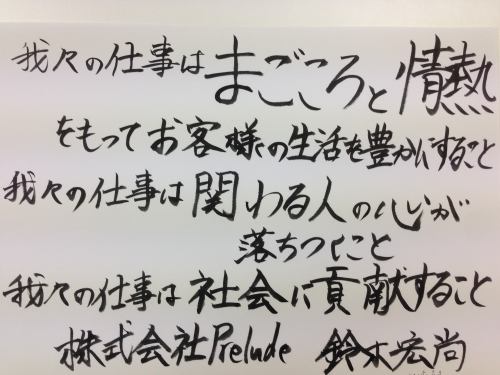 我々の仕事はまごころと情熱
をもってお客様の生活を豊かにすること
我々の仕事は関わる人の心が
落ちつくこと
我々の仕事は社会に貢献すること
株式会社Prelude 鈴木宏尚